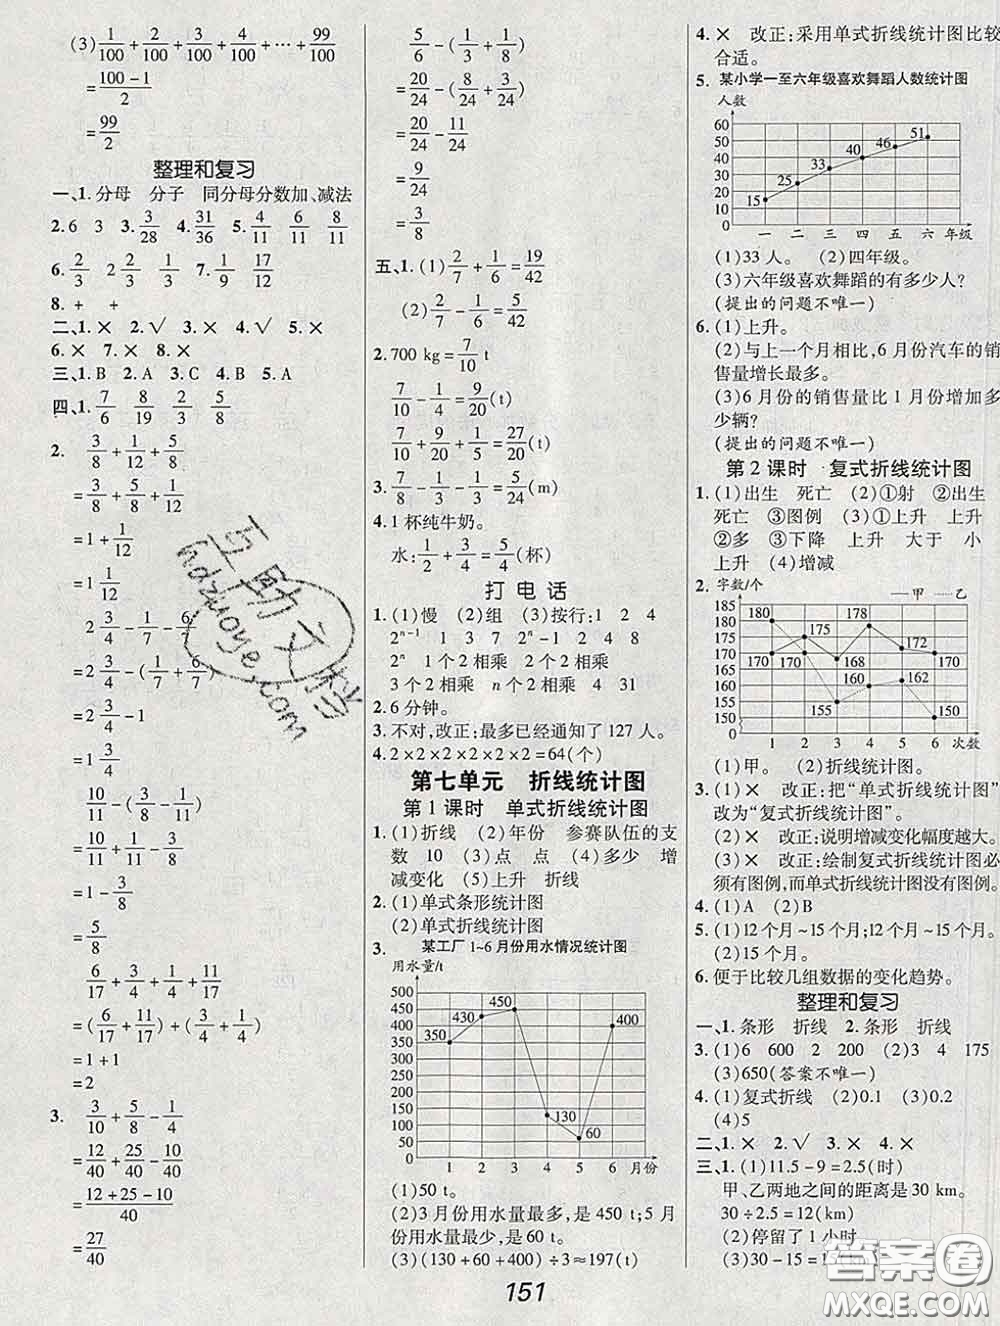 (3) 1/100 + 2/100 + 3/100 + 4/100 + … + 99/100
= (100-1)/2
= 99/2
整理和复习
一、1. 分母 分子 同分母分数加、减法
2. 6 3 3. 3/28 4. 31/36 5. 4/11 6/11 8/11
6. 2/3 2 2/3 7. 1/9 17/12
8. + +
二、1. × 2. √ 3. × 4. √ 5. ×
6. × 7. × 8. ×
三、1. B 2. A 3. C 4. B 5. A
四、1. 7/6 8/19 2/3 5/8
2. 3/8 + 1/12 + 5/8
= 3/8 + 5/8 + 1/12
= 1 + 1/12
= 1 1/12
2 3/4 - 1/7 - 6/7
= 2 3/4 - (1/7 + 6/7)
= 2 3/4 - 1
= 1 3/4
10/11 - (3/8 - 1/11)
= 10/11 + 1/11 - 3/8
= 1 - 3/8
= 5/8
6/17 + 3/4 + 1/4 + 11/17
= (6/17 + 11/17) + (3/4 + 1/4)
= 1 + 1
= 2
3. 3/10 + 5/8 - 1/4
= 12/40 + 25/40 - 10/40
= (12+25-10)/40
= 27/40
5/6 - (1/3 + 1/8)
= 20/24 - (8/24 + 3/24)
= 20/24 - 11/24
= 9/24
= 3/8
五、1. (1) 2/7 + 1/6 = 19/42
(2) 2/7 - 1/6 = 5/42
2. 700 kg = 7/10 t
7/10 - 1/4 = 9/20 (t)
7/10 + 9/20 + 1/5 = 27/20 (t)
3. 7/8 - 1/3 - 1/3 = 5/24 (m)
4. 1杯纯牛奶。
水: 1/2 + 3/4 = 5/4 (杯)
打电话
1. (1)慢 (2)组 (3)按行:1 2 4
2ⁿ⁻¹ 1 3 7 2ⁿ-1 2 4 8
2ⁿ 1个2相乘 2个2相乘
3个2相乘 n个2相乘 4 31
2. 6分钟。
3. 不对,改正:最多已经通知了127人。
4. 2×2×2×2×2×2=64(个)
第七单元 折线统计图
第1课时 单式折线统计图
1. (1)折线 (2)年份 参赛队伍的支
数 10 (3)点 点 (4)多少 增
减变化 (5)上升 折线
2. (1)单式条形统计图
(2)单式折线统计图
3. 某工厂1~6月份用水情况统计图
用水量/t
500
450
400
350
300
250
200
150
100
50
0
350 430 450 130 60 400
1 2 3 4 5 6 月份
(1)50 t。
(2)3月份用水量最多,是450 t;5月
份用水量最少,是60 t。
(3)(130+60+400)÷3≈197(t)
4. × 改正:采用单式折线统计图比较
合适。
5. 某小学一至六年级喜欢舞蹈人数统计图
人数
60
50
40
30
20
10
0
15 25 33 40 46 51
一 二 三 四 五 六 年级
(1)33人。 (2)四年级。
(3)六年级喜欢舞蹈的有多少人?
(提出的问题不唯一)
6. (1)上升。
(2)与上一个月相比,6月份汽车的销
售量增长最多。
(3)6月份的销售量比1月份增加多
少辆?
(提出的问题不唯一)
第2课时 复式折线统计图
1. (1)出生 死亡 (2)①射 ②出生
死亡 ③图例 (3)①上升 上升
②多 ③下降 上升 大于 小
上升 (4)增减
2. 字数/个 —甲 ……乙
185
180
175
170
165
160
155
150
0
180 175 168 178 172 170
170 170 155 160 162 150
1 2 3 4 5 6 次数
(1)甲。 (2)折线统计图。
3. (1)× 改正:把“单式折线统计图”
改为“复式折线统计图”。
(2)× 改正:说明增减变化幅度越大。
(3)× 改正:绘制复式折线统计图必
须有图例,而单式折线统计图没有图例。
4. (1)A (2)B
5. (1)12个月~15个月;12个月~15个月。
(2)15个月。
6. 便于比较几组数据的变化趋势。
整理和复习
一、1. 条形 折线 2. 条形 折线
3. (1)6 600 2 200 (2)3 4 175
(3)650(答案不唯一)
4. (1)复式折线 (2)0.1 (3)0.2
(4)5
二、1. × 2. √ 3. × 4. ×
三、1. (1)11.5-9=2.5(时)
甲、乙两地之间的距离是30 km。
30÷2.5=12(km)
(2)停留了1小时
(3)30-15=15(km)
151
互助文档
hdzuoye.com
答案圈
MXQE.COM